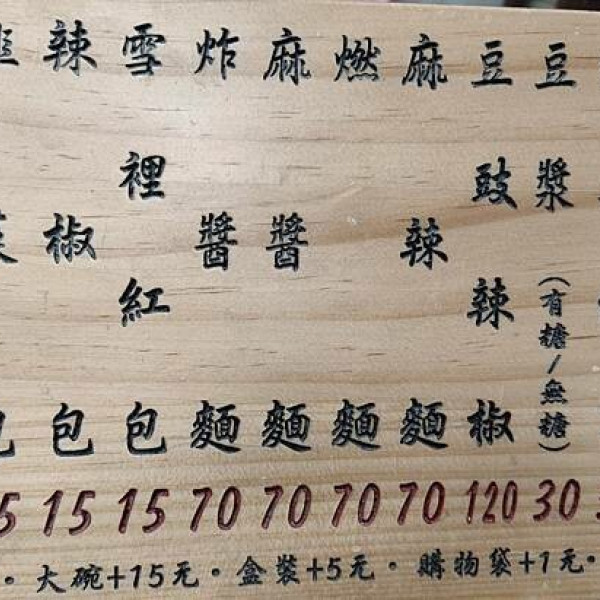 豆漿(有糖/無糖) 30
豆豉辣椒 120
麻辣麵 70
燃麵 70
麻醬麵 70
炸醬麵 70
雪裡紅包 15
辣椒包 15
。大碗+15元。盒裝+5元。購物袋+1元。